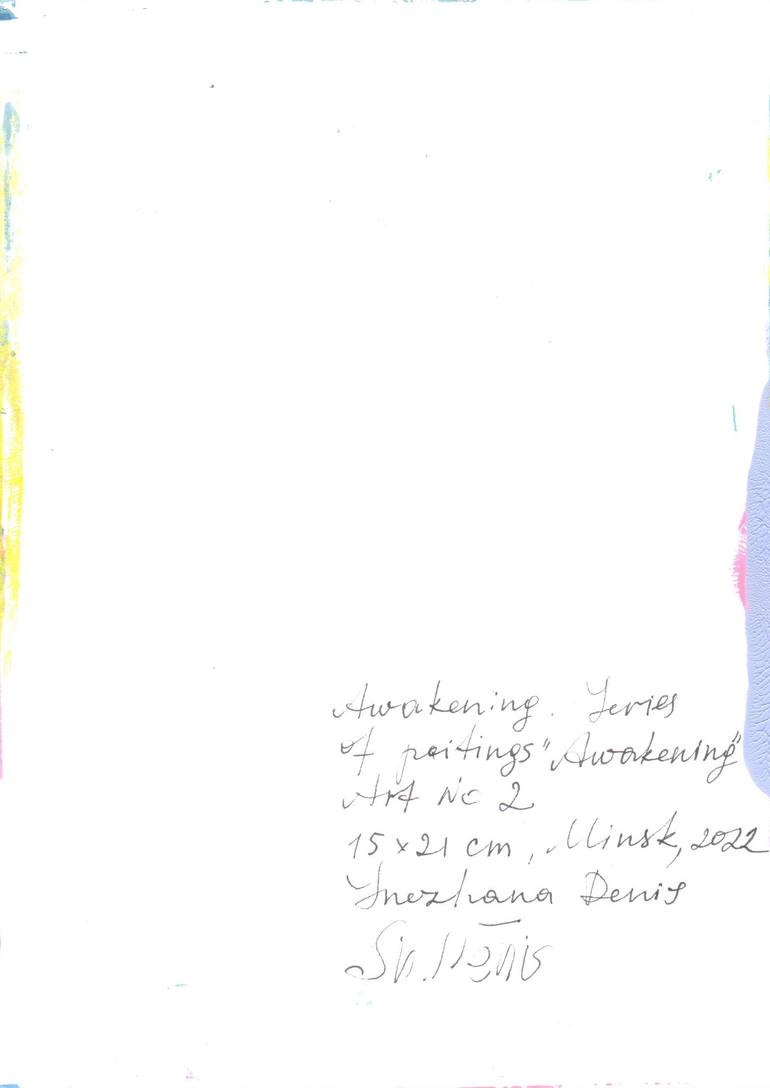 Awakening. Series
of paitings "Awakening"
Art № 2
15 x 21 cm, Minsk, 2022
Snezhana Denis
Sn. Denis